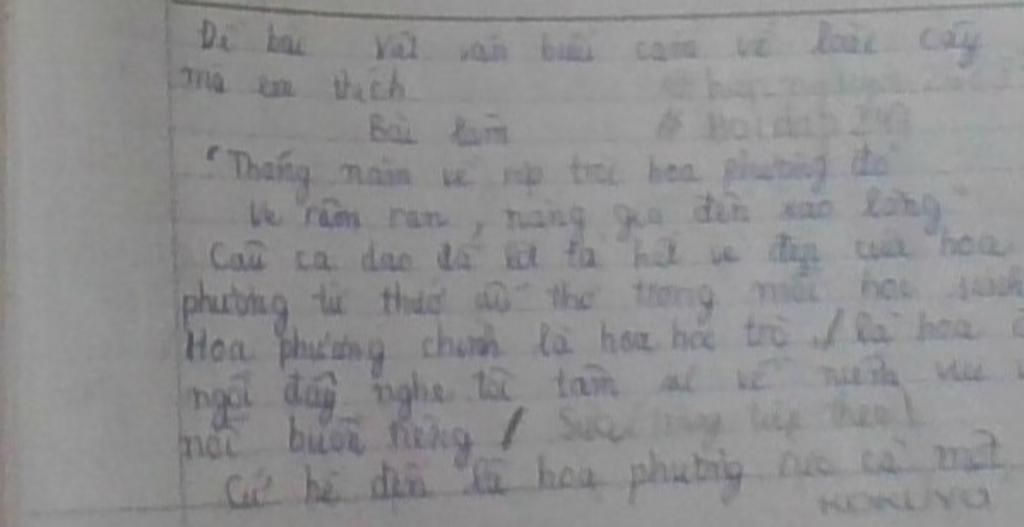 Đề bài Viết văn biểu cảm về loài cây
mà em thích
Bài làm
"Tháng năm về rợp trời hoa phượng đỏ
Ve râm ran, nắng gió đến xao lòng"
Câu ca dao đã tả hết vẻ đẹp của hoa
phượng từ thuở ấu thơ trong mỗi học sinh
Hoa phượng chính là hoa học trò / là hoa
ngồi đấy nghe tôi tâm sự về niềm vui
nỗi buồn riêng /
Cứ hè đến là hoa phượng rực cả một
KOKUYO